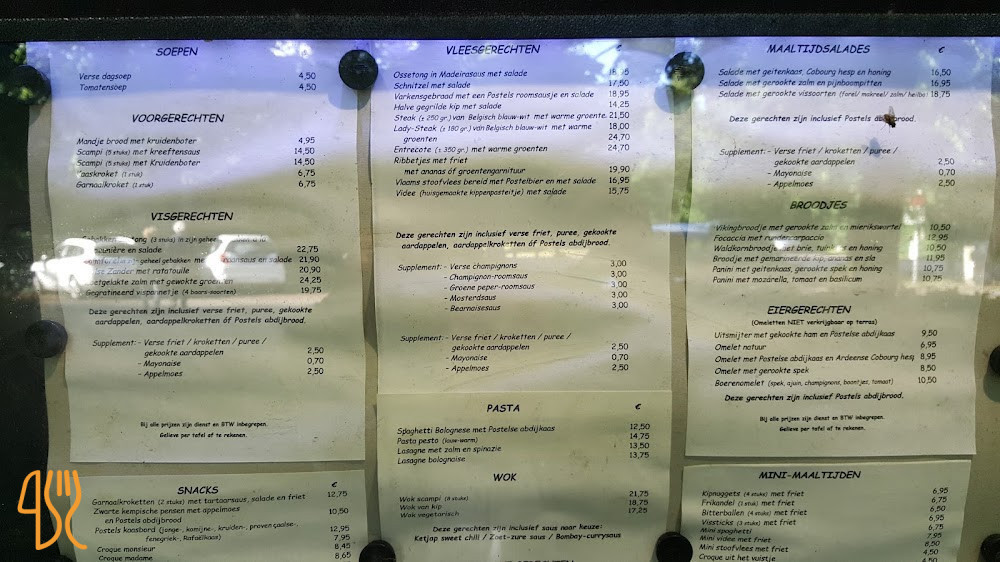 SOEPEN
Verse dagsoep 4,50
Tomatensoep 4,50
VOORGERECHTEN
Mandje brood met kruidenboter 4,95
Scampi (5 stuks) met kreeftensaus 14,50
Scampi (5 stuks) met Kruidenboter 14,50
(1 stuk) 6,75
Garnaalkroket (1 stuk) 6,75
VISGERECHTEN
(3 stuks) in zijn
en salade 22,75
geheel gebakken en salade 21,90
Zander met ratatouille 20,90
zalm met gewokte groenten 24,25
Gegratineerd vispannetje (4 soorten) 19,75
Deze gerechten zijn inclusief verse friet, puree, gekookte
aardappelen, aardappelkroketten óf Postels abdijbrood.
Supplement: - Verse friet / kroketten / puree /
gekookte aardappelen 2,50
- Mayonaise 0,70
- Appelmoes 2,50
Bij alle prijzen zijn dienst en BTW inbegrepen.
Gelieve per tafel af te rekenen.
SNACKS €
Garnaalkroketten (2 stuks) met tartaarsaus, salade en friet 12,75
Zwarte kempische pensen met appelmoes
en Postels abdijbrood 10,50
Postels kaasbord (jonge-, komijne-, kruiden-, provençaalse-,
fenegriek-, Rafaëlkaas) 12,95
Croque monsieur 7,95
Croque madame 8,45
8,65
VLEESGERECHTEN €
Ossetong in Madeirasaus met salade
Schnitzel met salade 17,50
Varkensgebraad met een Postels roomsausje en salade 18,95
Halve gegrilde kip met salade 14,25
Steak (± 250 gr.) van Belgisch blauw-wit met warme groente 21,50
Lady-Steak (± 180 gr.) van Belgisch blauw-wit met warme 18,00
groenten 24,70
Entrecote (± 350 gr.) met warme groenten 24,70
Ribbetjes met friet
met ananas óf groentengarnituur 19,90
Vlaams stoofvlees bereid met Postelbier en met salade 16,95
Videe (huisgemaakte kippenpasteitje) met salade 15,75
Deze gerechten zijn inclusief verse friet, puree, gekookte
aardappelen, aardappelkroketten óf Postels abdijbrood.
Supplement: - Verse champignons 3,00
- Champignon-roomsaus 3,00
- Groene peper-roomsaus 3,00
- Mosterdsaus 3,00
- Bearnaisesaus 3,00
Supplement: - Verse friet / kroketten / puree /
gekookte aardappelen 2,50
- Mayonaise 0,70
- Appelmoes 2,50
PASTA €
Spaghetti Bolognese met Postelse abdijkaas 12,50
Pasta pesto (lauw-warm) 14,75
Lasagne met zalm en spinazie 13,50
Lasagne bolognaise 13,75
WOK
Wok scampi (8 stuks) 21,75
Wok van kip 18,75
Wok vegetarisch 17,25
Deze gerechten zijn inclusief saus naar keuze:
Ketjap sweet chili / Zoet-zure saus / Bombay-currysaus
MAALTIJDSALADES €
Salade met geitenkaas, Cobourg hesp en honing 16,50
Salade met gerookte zalm en pijnboompitten 16,95
Salade met gerookte vissoorten (forel/ makreel/ zalm/ heilbot 18,75
Deze gerechten zijn inclusief Postels abdijbrood.
Supplement: - Verse friet / kroketten / puree /
gekookte aardappelen 2,50
- Mayonaise 0,70
- Appelmoes 2,50
BROODJES
Vikingbroodje met gerookte zalm en mierikswortel 10,50
Focaccia met rundercarpaccio 12,95
Waldkornbroodje met brie, en honing 10,50
Broodje met gemarineerde kip, ananas en sla 11,95
Panini met geitenkaas, gerookte spek en honing 10,75
Panini met mozarella, tomaat en basilicum 10,75
EIERGERECHTEN
(Omeletten NIET verkrijgbaar op terras)
Uitsmijter met gekookte ham en Postelse abdijkaas 9,50
Omelet natuur 6,95
Omelet met Postelse abdijkaas en Ardeense Cobourg hesp 8,95
Omelet met gerookte spek 8,50
Boerenomelet (spek, ajuin, champignons, boontjes, tomaat) 10,50
Deze gerechten zijn inclusief Postels abdijbrood.
Bij alle prijzen zijn dienst en BTW inbegrepen.
Gelieve per tafel af te rekenen.
MINI-MAALTIJDEN €
Kipnuggets (4 stuks) met friet 6,95
Frikandel (1 stuk) met friet 6,75
Bitterballen (4 stuks) met friet 6,50
Vissticks (3 stuks) met friet 6,95
Mini spaghetti 6,75
Mini videe met friet 7,95
Mini stoofvlees met friet 8,50
Croque uit het vuistje 4,50